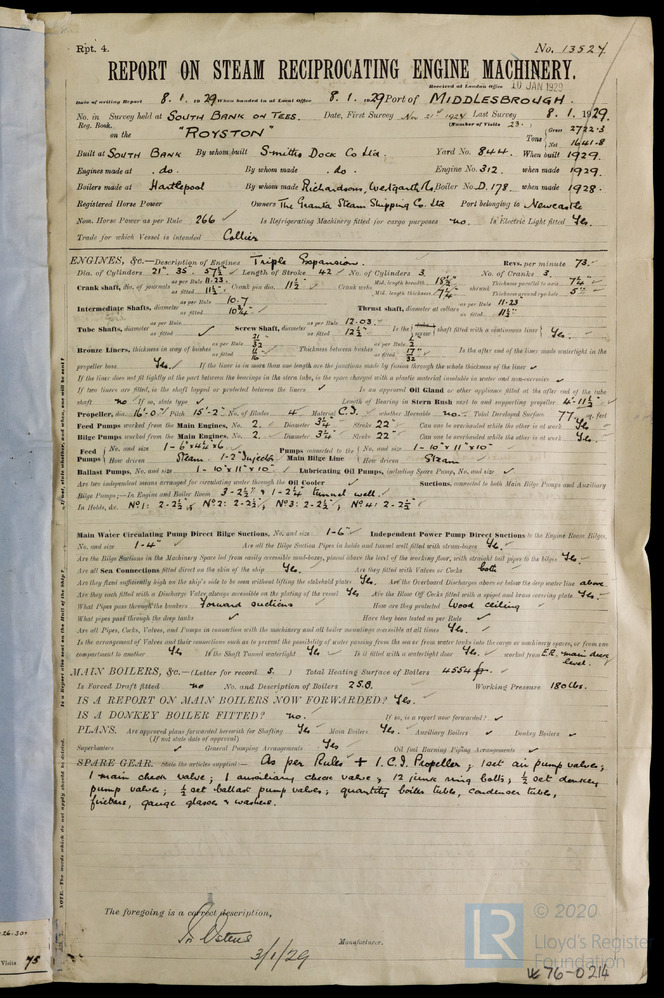 Rpt. 4. No. 13527
REPORT ON STEAM RECIPROCATING ENGINE MACHINERY.
Received at London Office 10 JAN 1929
Date of writing Report 8. 1. 1929 When handed in at Local Office 8. 1. 1929 Port of MIDDLESBROUGH.
No. in Reg. Book. Survey held at SOUTH BANK ON TEES. Date, First Survey Nov 21st 1928 Last Survey 8. 1. 1929.
(Number of Visits 23.)
on the "ROYSTON" Tons Gross 2722.3 Net 1641.8
Built at SOUTH BANK By whom built Smiths Dock Co Ltd. Yard No. 844. When built 1929.
Engines made at do. By whom made do. Engine No. 312. when made 1929.
Boilers made at Hartlepool By whom made Richardsons, Westgarth Boiler No. D. 178. when made 1928.
Registered Horse Power Owners The Granta Steam Shipping Co. Ltd Port belonging to Newcastle
Nom. Horse Power as per Rule 266 ✓ Is Refrigerating Machinery fitted for cargo purposes no. Is Electric Light fitted Yes.
Trade for which Vessel is intended Collier
ENGINES, &c.—Description of Engines Triple Expansion. Revs. per minute 73.
Dia. of Cylinders 21". 35. 57½ Length of Stroke 42 No. of Cylinders 3. No. of Cranks 3.
Crank shaft, dia. of journals as per Rule 11.23. as fitted 11½ Crank pin dia. 11½ Crank webs Mid. length breadth 18½ Mid. length thickness 7¼ shrunk Thickness parallel to axis 7¼ Thickness around eye-hole 5"
Intermediate Shafts, diameter as per Rule 10.7 as fitted 10¾ Thrust shaft, diameter at collars as per Rule 11.23 as fitted 11½
Tube Shafts, diameter as per Rule as fitted ✓ Screw Shaft, diameter as per Rule 12.03. as fitted 12½ Is the screw shaft fitted with a continuous liner Yes.
Bronze Liners, thickness in way of bushes as per Rule 21/32 as fitted 11/16 Thickness between bushes as per Rule 1/2 as fitted 17/32 Is the after end of the liner made watertight in the
propeller boss Yes. If the liner is in more than one length are the junctions made by fusion through the whole thickness of the liner ✓
If the liner does not fit tightly at the part between the bearings in the stern tube, is the space charged with a plastic material insoluble in water and non-corrosive ✓
If two liners are fitted, is the shaft lapped or protected between the liners ✓ Is an approved Oil Gland or other appliance fitted at the after end of the tube
shaft no If so, state type ✓ Length of Bearing in Stern Bush next to and supporting propeller 4'-11½"
Propeller, dia. 16'-0" Pitch 15'-2" No. of Blades 4 Material C.I. whether Moveable no. Total Developed Surface 77 sq. feet
Feed Pumps worked from the Main Engines, No. 2. Diameter 3¾" Stroke 22" Can one be overhauled while the other is at work Yes.
Bilge Pumps worked from the Main Engines, No. 2. Diameter 3¾" Stroke 22" Can one be overhauled while the other is at work Yes.
Feed Pumps No. and size 1 - 6"x4¼"x6 How driven Steam. 1-2" Injector Pumps connected to the Main Bilge Line No. and size 1 - 10"x11"x10" How driven Steam
Ballast Pumps, No. and size 1 - 10"x11"x10" Lubricating Oil Pumps, including Spare Pump, No. and size ✓
Are two independent means arranged for circulating water through the Oil Cooler ✓ Suctions, connected to both Main Bilge Pumps and Auxiliary
Bilge Pumps;—In Engine and Boiler Room 3-2½" & 1-2¼" tunnel well.
In Holds, &c. No 1: 2-2½", No 2: 2-2½", No 3: 2-2½", No 4: 2-2½"
Main Water Circulating Pump Direct Bilge Suctions, No. and size 1-6" Independent Power Pump Direct Suctions to the Engine Room Bilges,
No. and size 1-4" Are all the Bilge Suction Pipes in holds and tunnel well fitted with strum-boxes Yes.
Are the Bilge Suctions in the Machinery Space led from easily accessible mud-boxes, placed above the level of the working floor, with straight tail pipes to the bilges Yes.
Are all Sea Connections fitted direct on the skin of the ship Yes. Are they fitted with Valves or Cocks both
Are they fixed sufficiently high on the ship's side to be seen without lifting the stokehold plates Yes. Are the Overboard Discharges above or below the deep water line above.
Are they each fitted with a Discharge Valve always accessible on the plating of the vessel Yes Are the Blow Off Cocks fitted with a spigot and brass covering plate Yes.
What Pipes pass through the bunkers Forward suctions How are they protected Wood ceiling
What pipes pass through the deep tanks ✓ Have they been tested as per Rule ✓
Are all Pipes, Cocks, Valves, and Pumps in connection with the machinery and all boiler mountings accessible at all times Yes.
Is the arrangement of Valves and their connections such as to prevent the possibility of water passing from the sea or from water tanks into the cargo or machinery spaces, or from one
compartment to another Yes Is the Shaft Tunnel watertight Yes Is it fitted with a watertight door Yes worked from E.R. main deck level.
MAIN BOILERS, &c.—(Letter for record S.) Total Heating Surface of Boilers 4554
Is Forced Draft fitted no No. and Description of Boilers 2 S.B. Working Pressure 180 lbs.
IS A REPORT ON MAIN BOILERS NOW FORWARDED? Yes.
IS A DONKEY BOILER FITTED? no. If so, is a report now forwarded? ✓
PLANS. Are approved plans forwarded herewith for Shafting Yes Main Boilers Yes. Auxiliary Boilers ✓ Donkey Boilers ✓
(If not state date of approval)
Superheaters ✓ General Pumping Arrangements Yes Oil fuel Burning Piping Arrangements ✓
SPARE GEAR. State the articles supplied:— As per Rules + 1. C.I. Propeller; 1 set air pump valves;
1 main check valve; 1 auxiliary check valve; 12 junk ring bolts; ½ set donkey
pump valves; ½ set ballast pump valves; quantity boiler tubes, condenser tubes,
firebars, gauge glasses & washers.
The foregoing is a correct description,
Manufacturer.
3/1/29
26-30
Visits 75
© 2020
LR Lloyd's Register
Foundation
W 76-0214